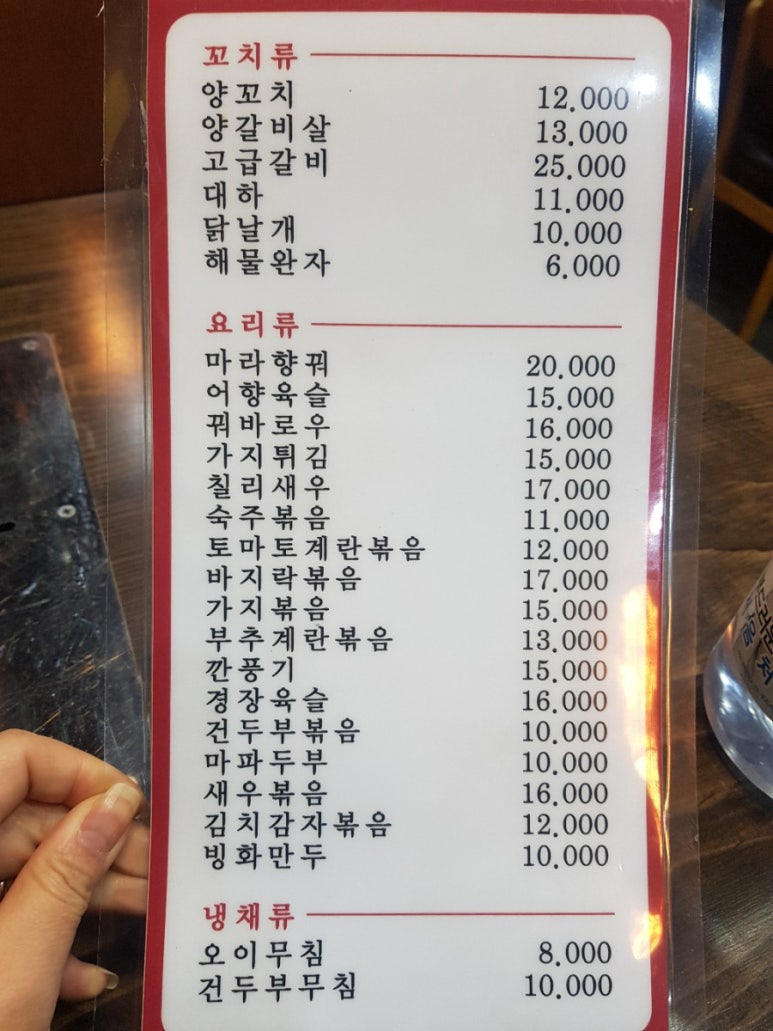 꼬치류
양꼬치 12,000
양갈비살 13,000
고급갈비 25,000
대하 11,000
닭날개 10,000
해물완자 6,000
요리류
마라향꿔 20,000
어향육슬 15,000
꿔바로우 16,000
가지튀김 15,000
칠리새우 17,000
숙주볶음 11,000
토마토계란볶음 12,000
바지락볶음 17,000
가지볶음 15,000
부추계란볶음 13,000
깐풍기 15,000
경장육슬 16,000
건두부볶음 10,000
마파두부 10,000
새우볶음 16,000
김치감자볶음 12,000
빙화만두 10,000
냉채류
오이무침 8,000
건두부무침 10,000